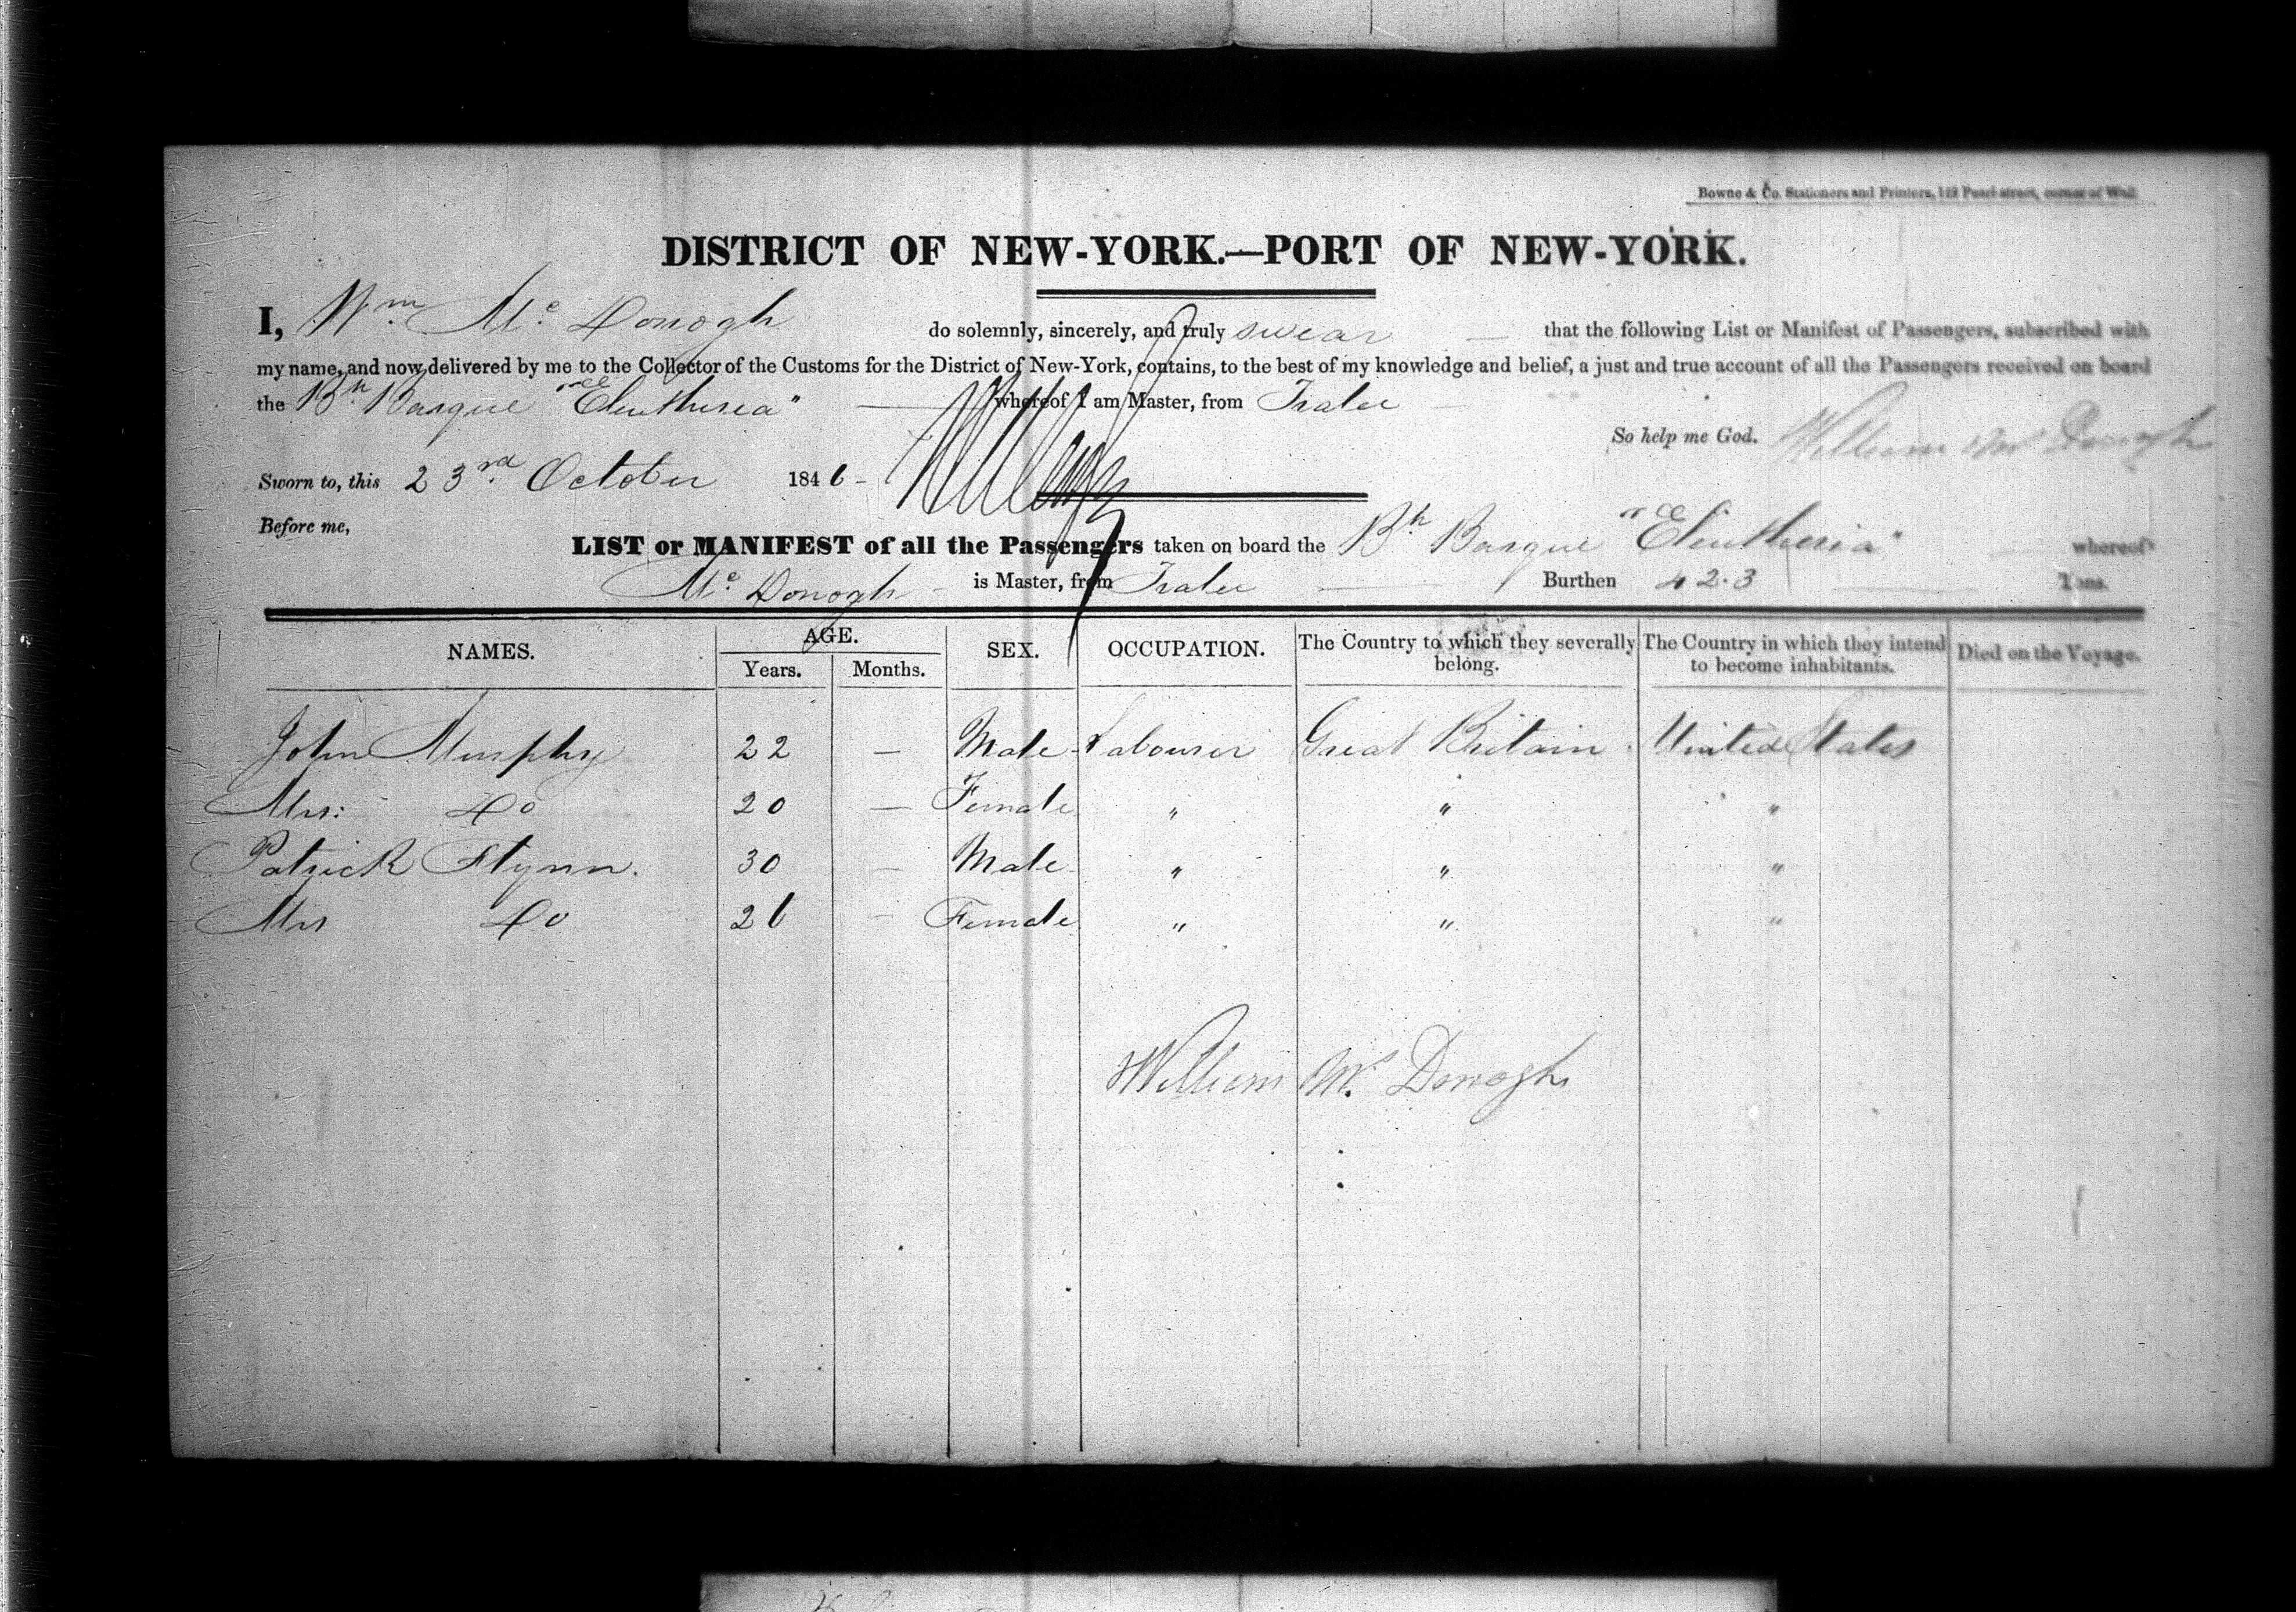 Bowne & Co. Stationers and Printers, 149 Pearl-street, corner of Wall
DISTRICT OF NEW-YORK.—PORT OF NEW-YORK.
I, Wm Mc Donogh do solemnly, sincerely, and truly swear — that the following List or Manifest of Passengers, subscribed with
my name, and now delivered by me to the Collector of the Customs for the District of New-York, contains, to the best of my knowledge and belief, a just and true account of all the Passengers received on board
the Bh Barque "Eleutheria" — whereof I am Master, from Tralee
So help me God. William Mc Donogh
Sworn to, this 23rd October 1846 -
Before me,
LIST or MANIFEST of all the Passengers taken on board the Bh Barque "Eleutheria" whereof
Mc Donogh - is Master, from Tralee — Burthen 423 — Tons.
NAMES. AGE. SEX. OCCUPATION. The Country to which they severally belong. The Country in which they intend to become inhabitants. Died on the Voyage.
Years. Months.
John Murphy 22 — Male Labourer Great Britain. United States
Mrs: Do 20 — Female " " "
Patrick Flynn. 30 — Male " " "
Mrs Do 26 - Female " " "
William Mc Donogh